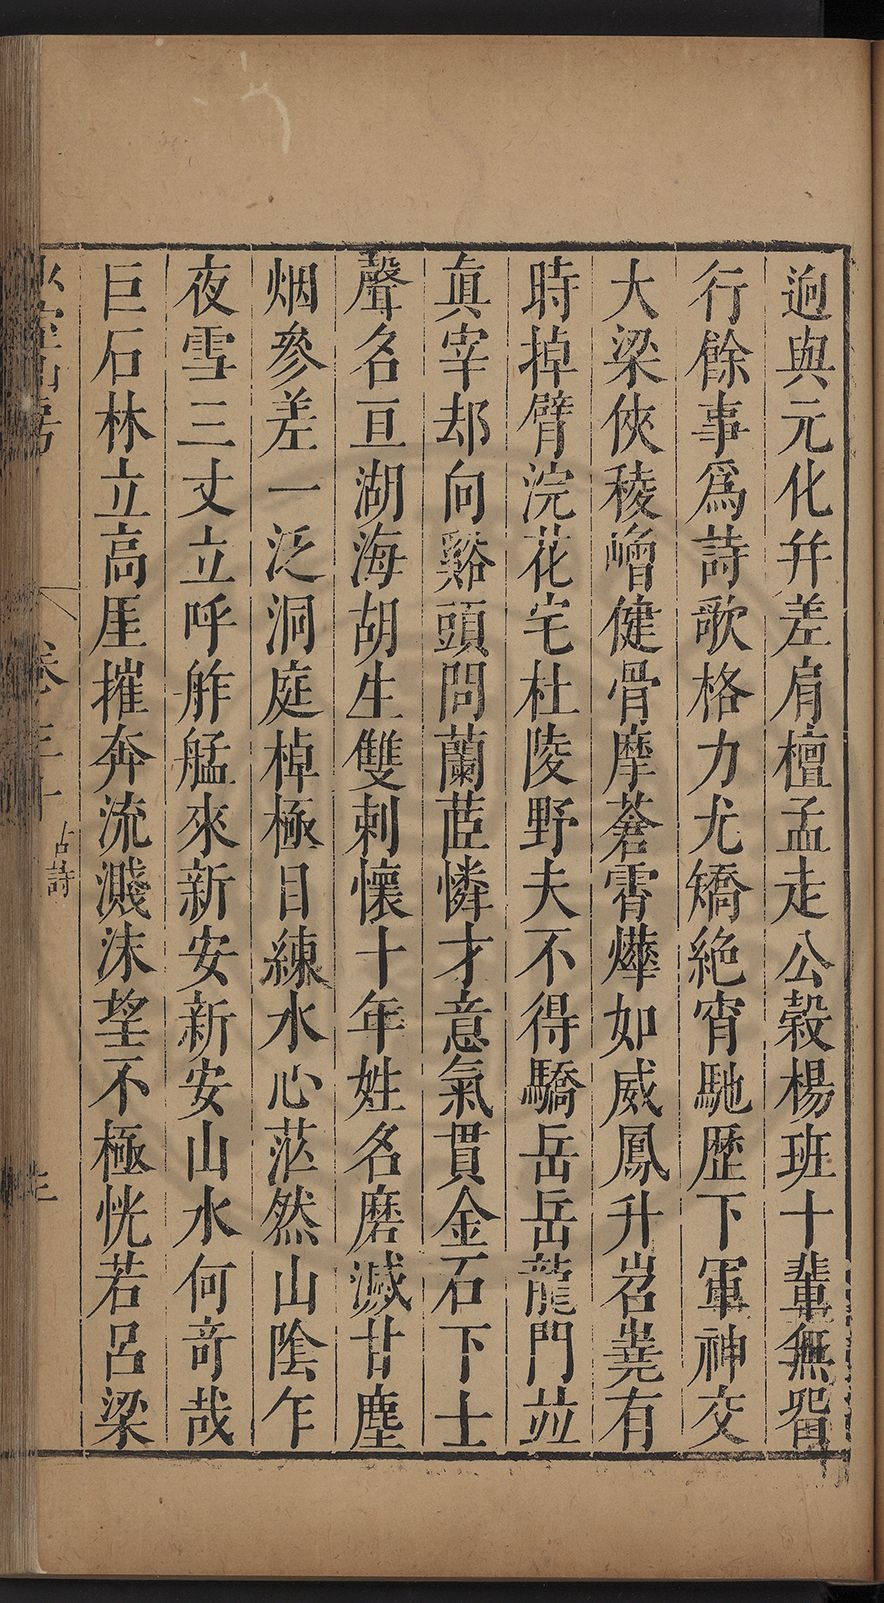 逈與元化幷差肩檀孟走公穀楊班十輩無㗬
行餘事爲詩歌格力尤矯絶宵馳歷下軍神交
大梁俠稜嶒健骨摩蒼霄燁如威鳳升岧嶤有
時掉臂浣花宅杜陵野夫不得驕岳岳龍門竝
眞宰却向谿頭問蘭茝憐才意氣貫金石下士
聲名亘湖海胡生雙刺懷十年姓名磨滅甘塵
烟參差一泛洞庭棹極目練水心茫然山陰乍
夜雪三丈立呼舴艋來新安新安山水何竒哉
巨石林立高厓摧奔流濺沫望不極恍若呂梁
卷三十
古詩